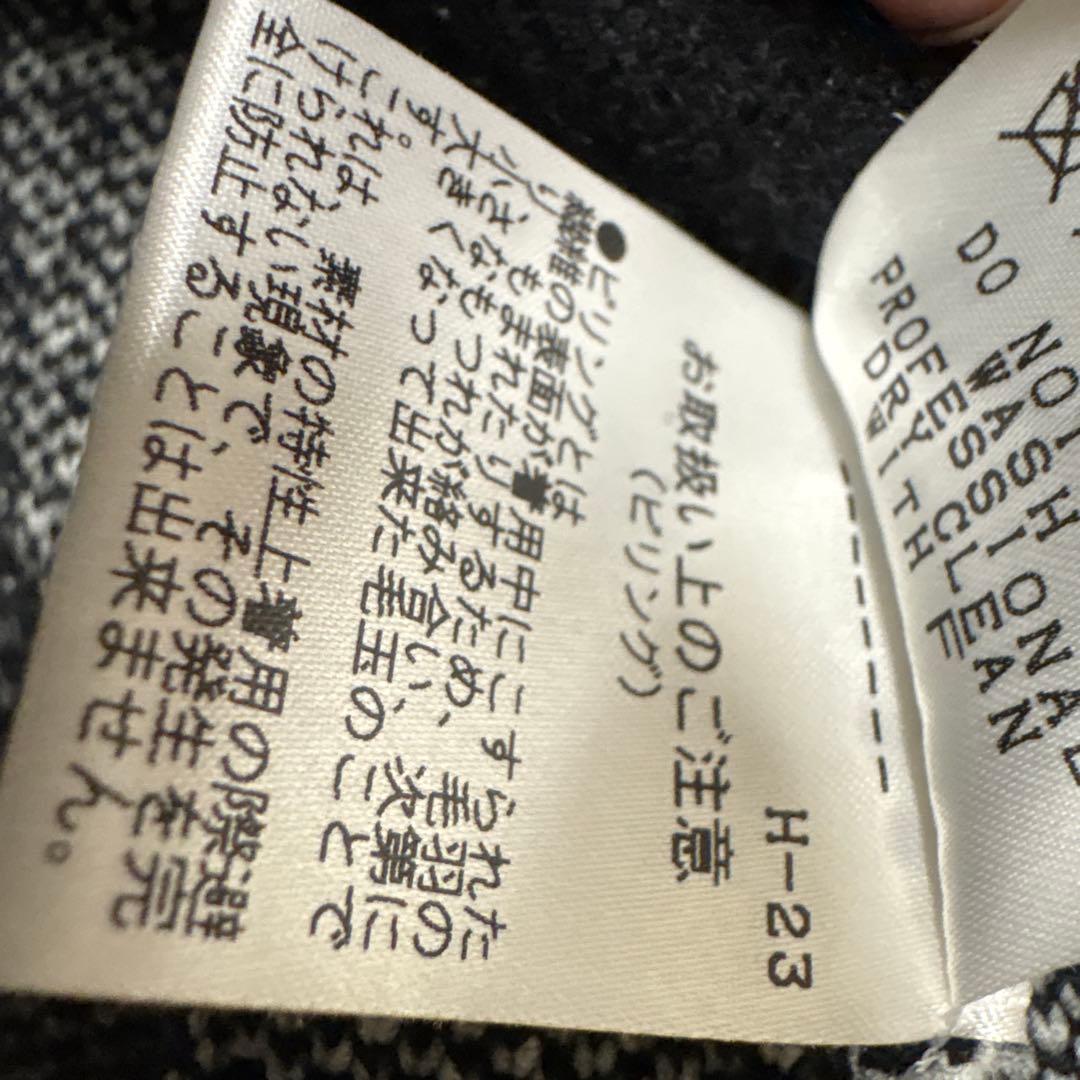 H-23
お取扱い上のご注意
(ピリング)
●ピリングとは
繊維の表面が着用中にこすられた
り、もまれたりするため、毛羽の
小さなもつれが絡み合い、次第に
大きくなって出来た毛玉のことで
す。
これは、素材の特性上着用の際避
けられない現象で、その発生を完
全に防止することは出来ません。
DO NOT
WASH
PROFESSIONAL
DRY CLEAN
WITH F